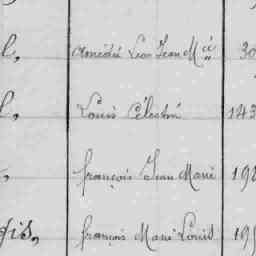 l, Amédée Léon Jean Mie 30
l, Louis Célestin 143
, François Jean Marie 198
gis, François Marie Louis 195